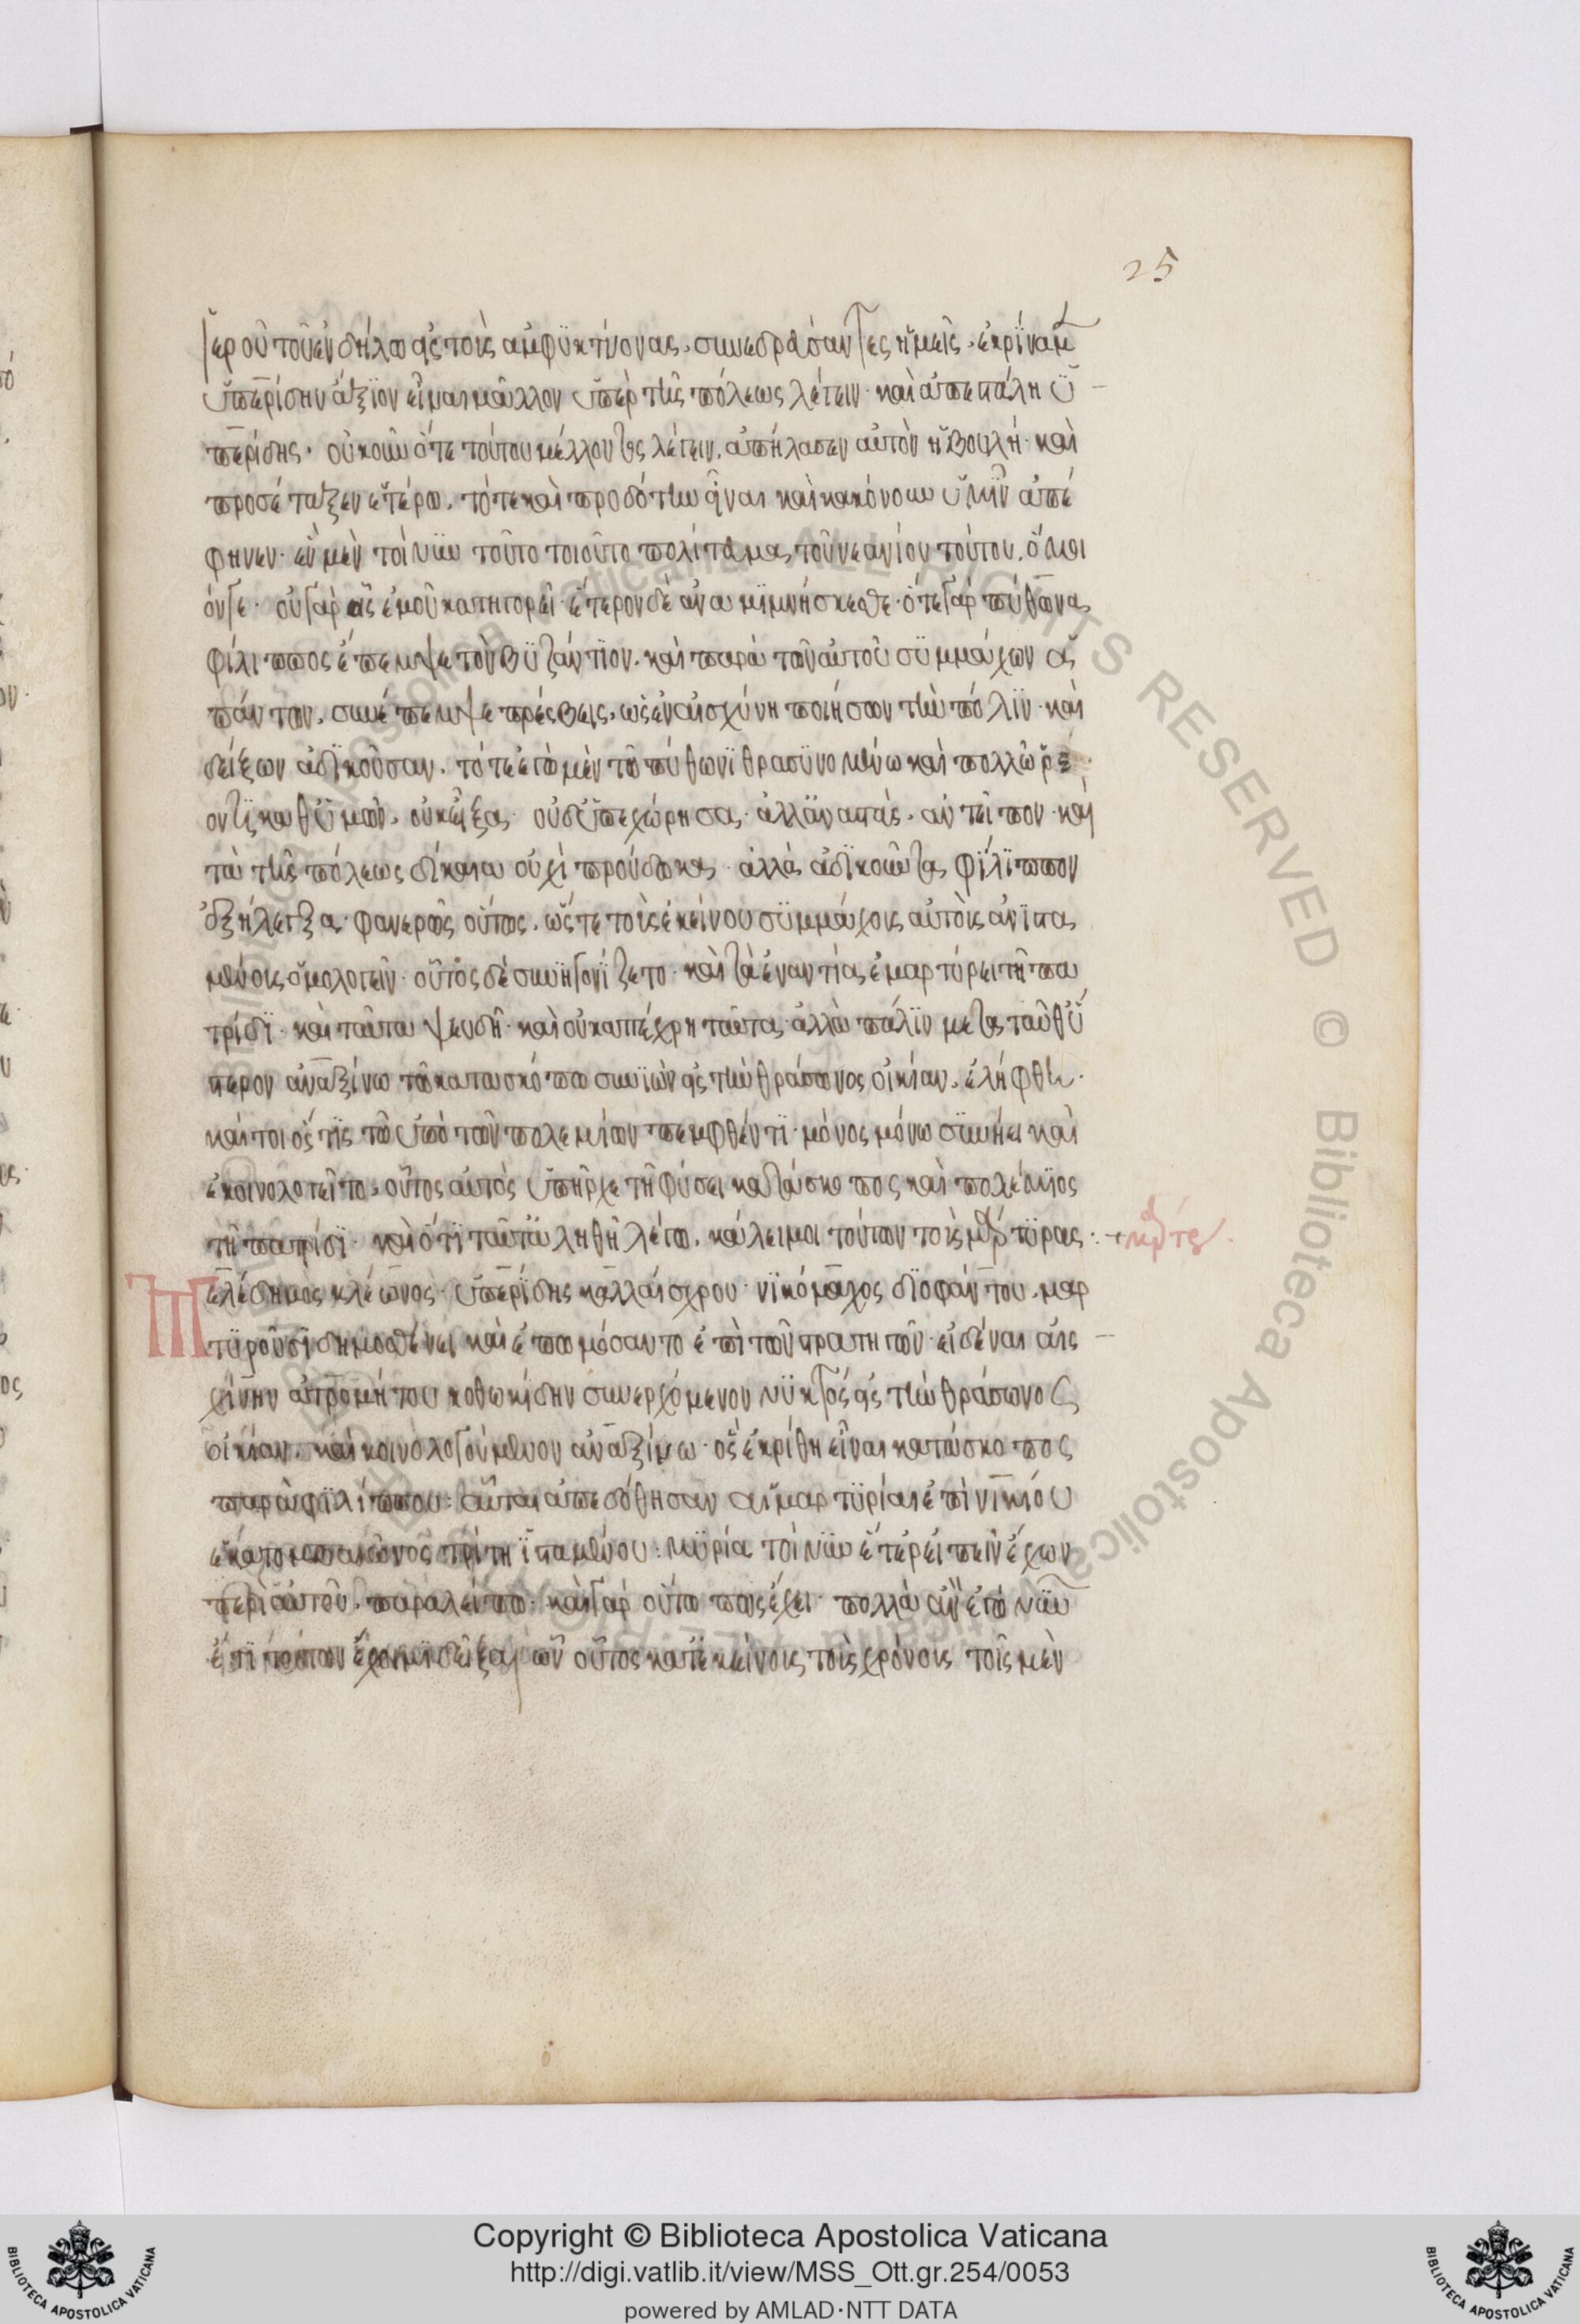 25
ἱεροῦ τοῦ ἐν δήλω εἰς τοὺς ἀμφϋκτύονας. συνεδρεύσαντες ἡμεῖς. ἐκρίναμ
ὑπερίδην ἄξϊον εἶναι μᾶλλον ὑπὲρ τῆς πόλεως λέγειν· καὶ ἀπεστάλη ὑ
περίδης. οὐκοῦν ὅτε τούτου μέλλοντος λέγειν. ἀπήλασεν αὐτὸν ἡ βουλή· καὶ
προσέταξεν ἑτέρω. τότε καὶ προδότην εἶναι καὶ κακόνουν ὑμῖν ἀπέ
φηνεν· ἓν μὲν τοίνϋν τοῦτο τοιοῦτο πολίτευμα τοῦ νεανίου τούτου. ὅμοι
όν γε· οὐ γάρ οἷς ἐμοῦ κατηγορεῖ· ἕτερον δὲ ἀναμϊμνήσκεσθε· ὅτε γὰρ πύθωνα
φίλιππος ἔπεμψε τὸν βϋζάντϊον. καὶ παρὰ τῶν αὐτοῦ συμμάχων
πάντων. συνέπεμψε πρέσβεις. ὡς ἐν αἰσχύνη ποιήσων τὴν πόλϊν· καὶ
δείξων ἀδϊκοῦσαν. τότε ἐγὼ μὲν τῶ πύθωνϊ θρασϋνομένω καὶ πολλῶ ῥέ
οντϊ καθ' ὑμῶν. οὐκ εἶξα· οὐδ' ὑπεχώρησα· ἀλλ' ἀναστὰς. ἀντεῖπον· καὶ
τὰ τῆς πόλεως δίκαια οὐχὶ προύδωκα· ἀλλὰ ἀδϊκοῦντα φίλϊππον
ἐξήλεγξα· φανερῶς οὕτως. ὥστε τοὺς ἐκείνου συμμάχους αὐτοὺς ἀνϊστα
μένους ὁμολογεῖν· οὗτος δὲ συνηγωνίζετο· καὶ τὰ ἐναντία ἐμαρτύρει τῆ πα
τρίδϊ· καὶ ταῦτα ψευδῆ· καὶ οὐκ ἀπέχρη ταῦτα ἀλλὰ πάλϊν μετὰ ταῦθ' ὕ
στερον ἀναξίνω τῶ κατασκόπω συνϊὼν εἰς τὴν θράσωνος οἰκίαν. ἐλήφθη·
καίτοι ὅς τϊς τῶ ὑπὸ τῶν πολεμίων πεμφθέντϊ· μόνος μόνω συνήει καὶ
ἐκοινολογεῖτο. οὗτος αὐτὸς ὑπῆρχε τῆ φύσει κατάσκοπος καὶ πολέμϊος
τῆ πατρίδϊ· καὶ ὅτϊ ταῦτ' ἀληθῆ λέγω. κάλει μοι τούτων τοὺς μάρτϋρας·
τελέδημος κλέωνος· ὑπερίδης καλλαίσχρου· νϊκόμαχος δϊοφάντου. μαρ
τϋροῦσϊ δημοσθένει καὶ ἐπωμόσαντο ἐπὶ τῶν στρατηγῶν· εἰδέναι αἰς
χίνην ἀτρομήτου κοθωκίδην συνερχόμενον νϋκτὸς εἰς τὴν θράσωνος
οἰκίαν. καὶ κοινολογούμενον ἀναξίνω· ὃς ἐκρίθη εἶναι κατάσκοπος
παρὰ φϊλίππου: αὗται ἀπεδόθησαν αἱ μαρτϋρίαι ἐπὶ νϊκίου
ἑκατομβαιῶνος τρίτη ϊσταμένου: μϋρία τοίνϋν ἕτερ' εἰπεῖν ἔχων
περὶ αὐτοῦ. παραλείπω· καὶ γὰρ οὕτω πως ἔχει· πολλὰ ἂν ἐγὼ νῦν
ἔτϊ τούτων ἔχοιμϊ δεῖξαι ὧν οὗτος κατ' ἐκείνους τοὺς χρόνους τοῖς μὲν
Copyright © Biblioteca Apostolica Vaticana
http://digi.vatlib.it/view/MSS_Ott.gr.254/0053
powered by AMLAD·NTT DATA